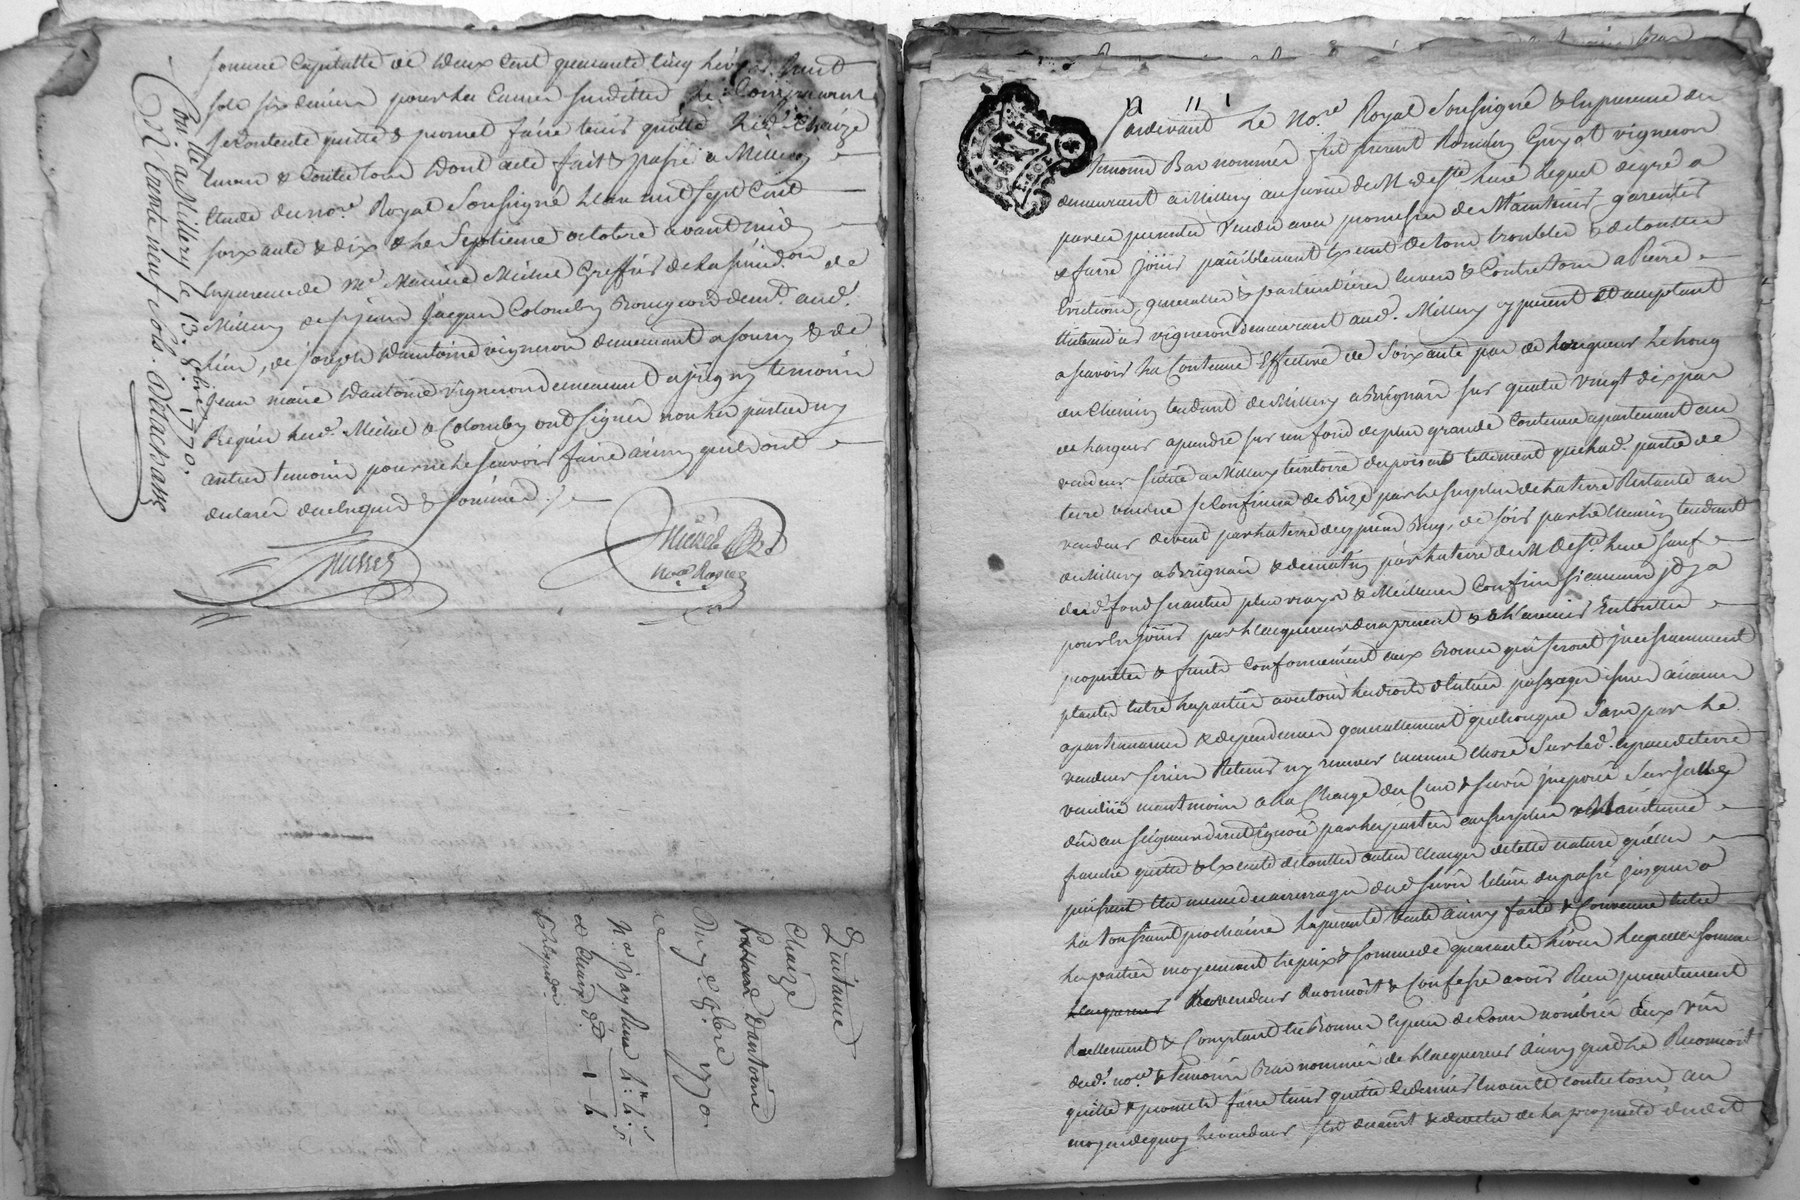 somme Capitalle de deux Cent quarante Cinq livres huit
sols six deniers pour les Causes susdittes
se Contente quitte & promet faire tenir quitte led. Chaize
envers & Contre tous Dont acte fait & passé a Millery
Etude du no.re Royal Soussigné l'an mil sept Cent
soixante & dix & le Septieme octobre avant midy
En presence de Me. Maurice Michel Greffier de la Juridon. de
Millery de sr. jean jacques Colomby Bourgeois demt. aud.
lieu, de joseph dantoine vigneron demeurant a & de
jean marie Dantoine vigneron demeurant a temoins
Requis led. Michel & Colomby ont signé non les parties ny
autres temoins pour ne le sçavoir faire ainsy quils ont
declaré de ce Enquis & sommés ./.
no.re Royal
Con.lle a Millery le 13. 8bre 1770.
R. trente neuf sols. Delachasse
Quittance
Chaize
Dantoine
Du 7. 8bre 1770.
Pardevant Le No.re Royal Soussigné & En presence des
temoins Bas nommés fut present Romain Guyot vigneron
demeurant a Millery au service de M. de Ste. lequel de gré a
par ces presentes Vendu avec promesse de Maintenir garentir
& faire jouir paisiblement Exempt de tous troubles & de touttes
Evictions, generalles & particulieres envers & Contre tous a Pierre
vigneron demeurant aud. Millery cy present & acceptant
a scavoir la Contenue Effective de Soixante pas de longueur le long
du Chemin tendant de Millery a Brignais sur quatre vingt dix pas
de largeur a prendre sur un fond de plus grande Contenue apartenant au
vendeur situé a Millery territoire du poirat tellement que lad. partie de
terre vendue se Confinera de Bize par le surplus de la terre Restante au
vendeur de vent par la terre de de soir par le Chemin tendant
de Millery a Brignais & de matin par la terre de M. de Ste. sauf
dud. fond ses autres plus vrays & Meilleurs Confins si aucuns jl y a
pour En jouir par l'acquereur des a present & a l'avenir En toutte
proprietté & fruits Conformement aux Bornes qui seront jncessamment
plantées entre les parties avec tous les droits d'Entrées passages issues aisances
apartenances & dependances generallement quelconques sans par le
vendeur s'en rien Retenir ny reserver aucune chose sur led. espace de terre
vendüe neantmoins a la Charge du Cens & servis jmposés sur jcelle
dû au seigneur direct ignoré par les parties au surplus Maintenue
franche quitte & Exempte de touttes autres charges de cette nature quelles
puissent être meme des arrerages dud. servis Echus du passé jusques a
la Toussaint prochaine la presente vente ainsy faitte & Convenue entre
les parties moyennant le prix & somme de quarante livres laquelle somme
Le vendeur Reconnoit & Confesse avoir Reçu presentement
Reellement & Comptant En Bonnes Especes de Cours nombrées aux vüe
dud. no.re & temoins Bas nommés de l'acquereur ainsy quil le Reconnoit
quitte & promet faire tenir quitte le dernier envers & contre tous au
moyen de quoy le vendeur s'est demis & devetu de la propriété dudit